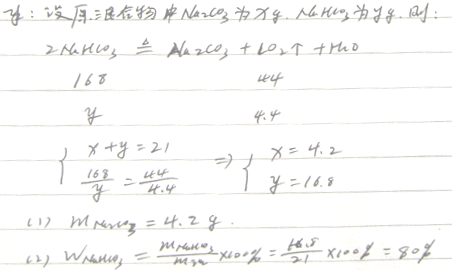 解：设原混合物中Na2CO3为xg. NaHCO3为yg. 则:
2NaHCO3 ≜ Na2CO3 + CO2↑ + H2O
168 44
y 4.4
{ x+y=21 => { x=4.2
168/y = 44/4.4 y=16.8
(1) mNa2CO3 = 4.2 g.
(2) WNaHCO3 = mNaHCO3/m混 ×100% = 16.8/21 ×100% = 80%